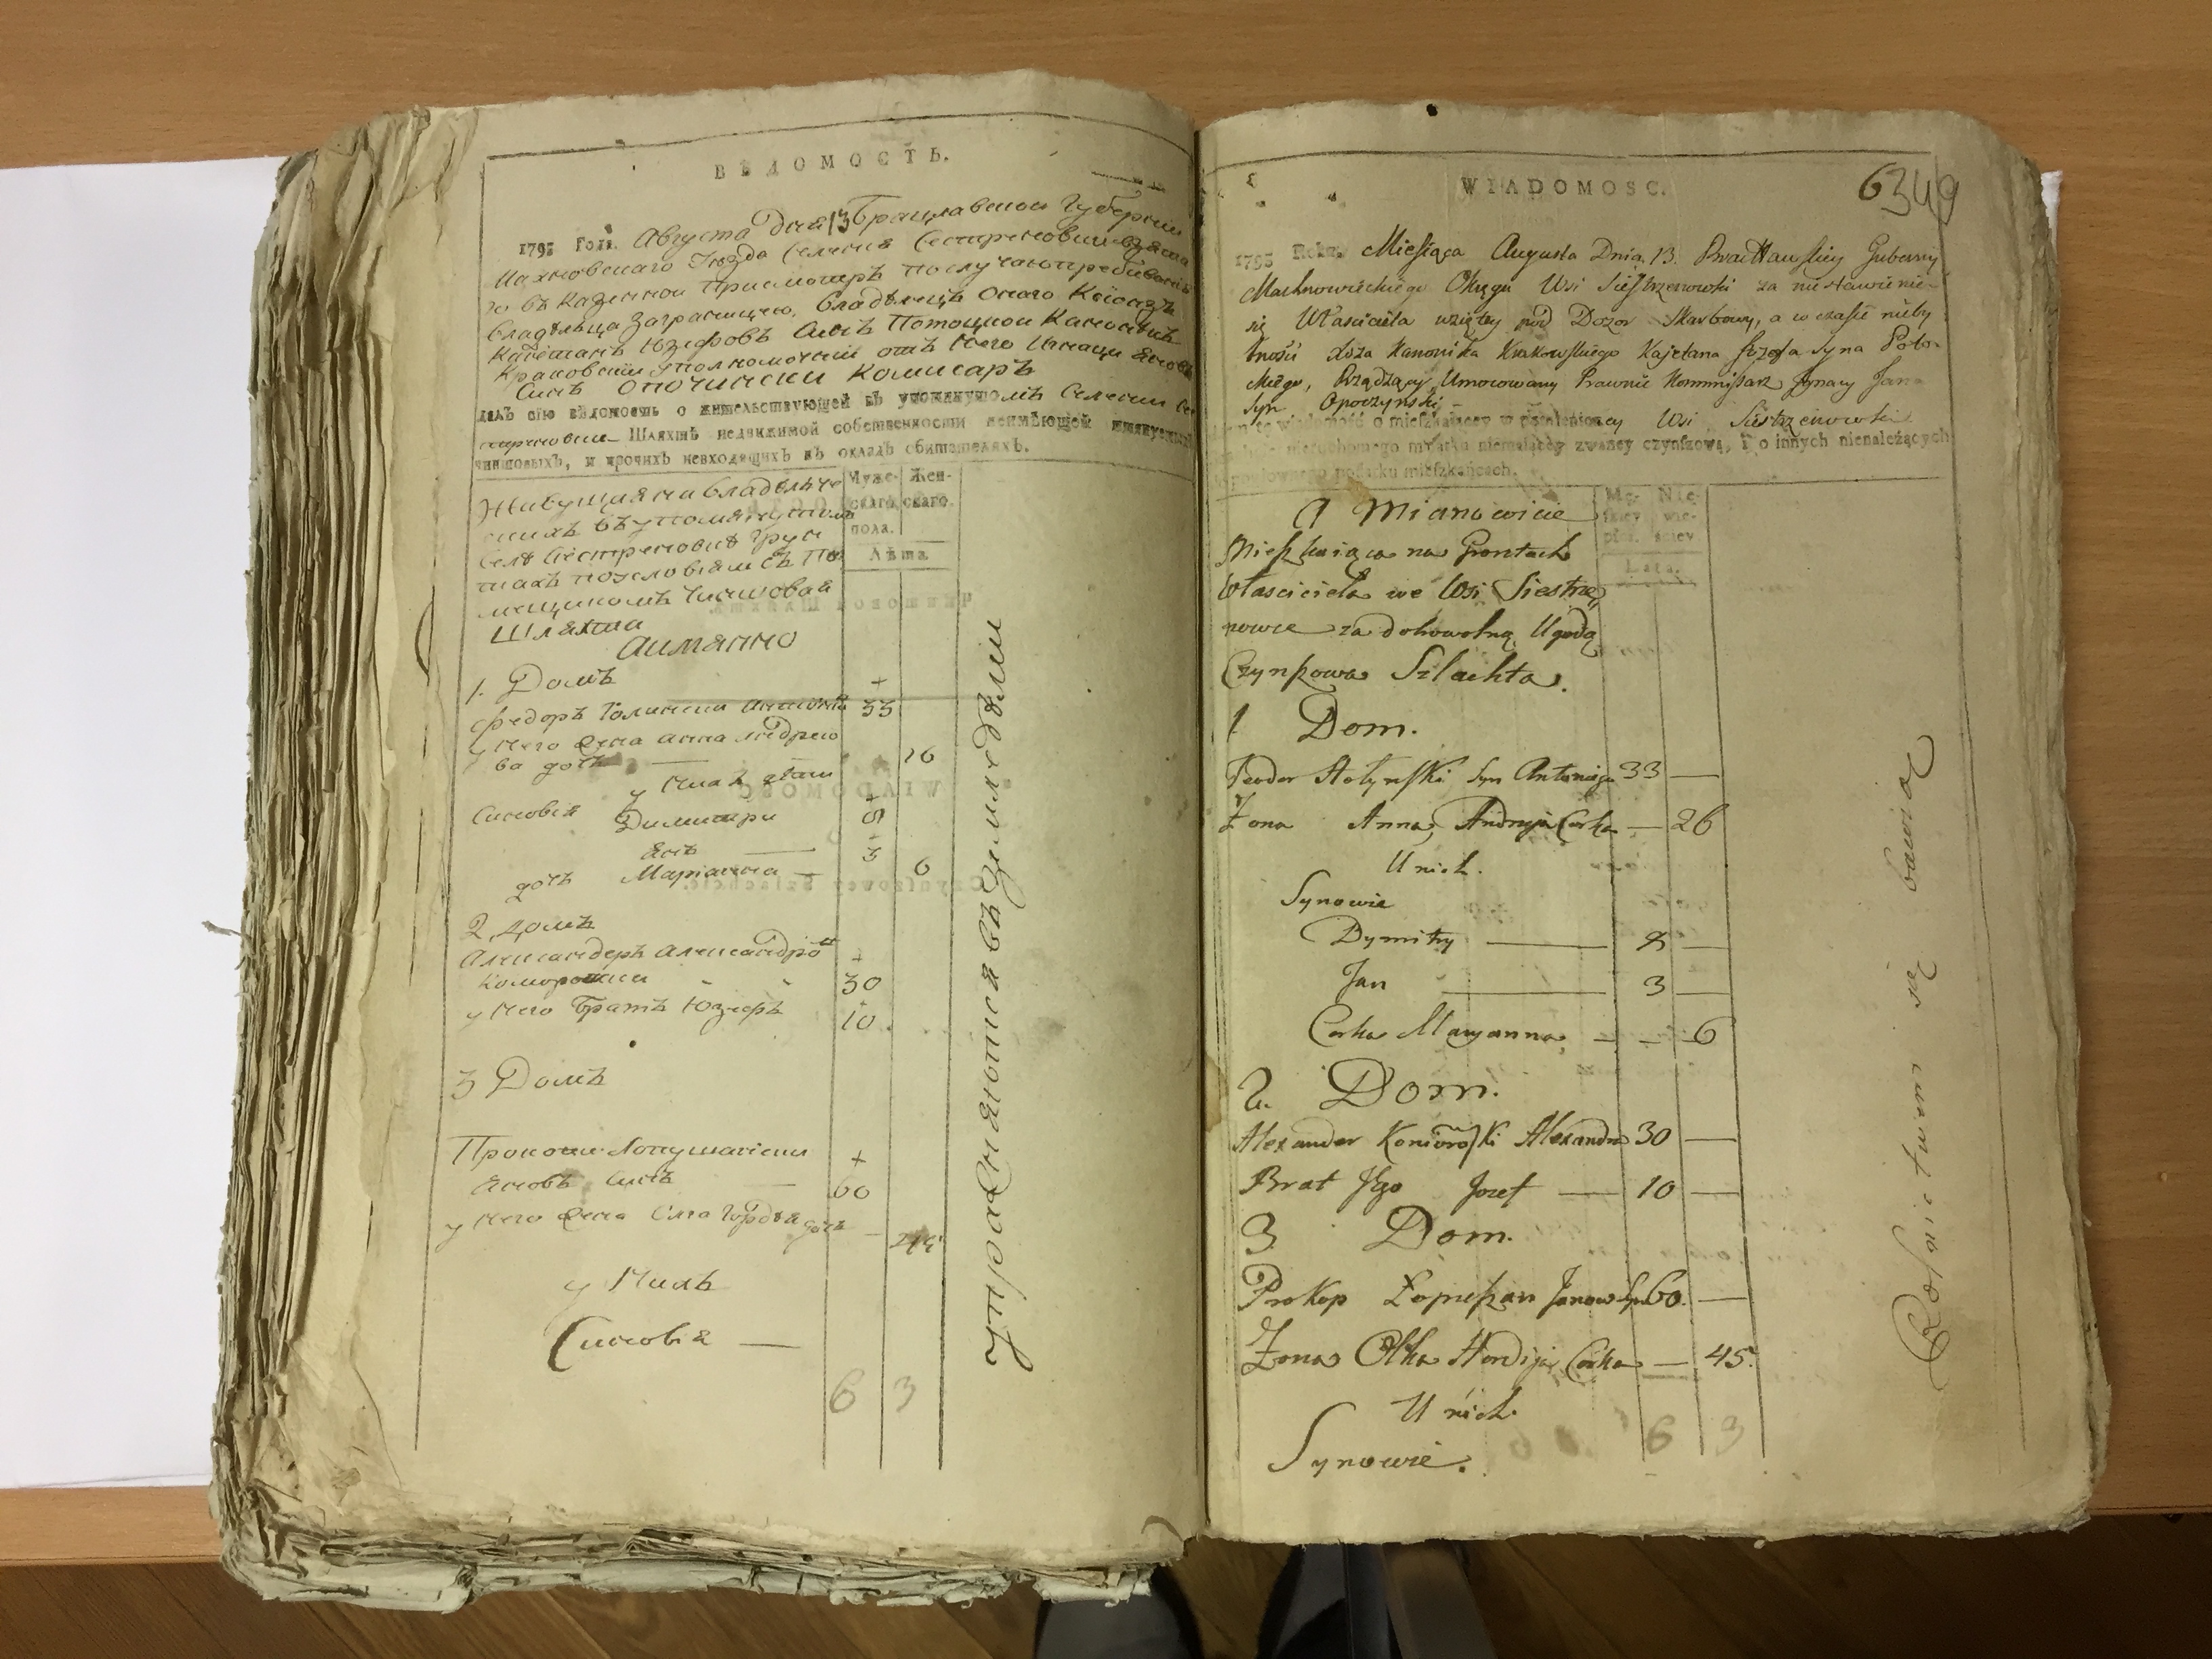 ВѢДОМОСТЬ.
1795 Года Августа дня 13 Брацлавской Губерніи
Махновскаго Уезда Селенія
го въ Казенной Присмотръ по случаю
Владѣльца заграницею, Владѣлецъ Оного Ксіондзъ
Каетанъ Юзефовъ Синъ Потоцкой Каноникъ
Краковскій уполномочній отъ Него Игнаци Яновъ
Синъ Опочински Комисаръ
далъ сію вѣдомость о жительствующей въ упомянутомъ Селении
Шляхтѣ недвижимой собственности неимѣющей
чиншовыхъ, и прочихъ невходящихъ въ окладъ обитателяхъ.
Муже- Жен-
скаго скаго
пола.
Лѣта
Живущая на Владѣльче
скихъ въ упомянутомъ
Селѣ Сестреновкѣ Грун
тахъ по условіямъ съ По
мещикомъ Чиншовая
Шляхта
а имянно
1. Домъ
Федоръ Голински Антоній 33
у Него Жена Анна Андрео
ва дочь — 26
у Нихъ дети
Синовія Димитри 8
Янъ — 3
дочь Маріанна — 6
2. домъ
Александеръ Александро
Коморовски 30
у Него Братъ Юзефъ 10
3 Домъ
Прокопи Лопушански
Яновъ Синъ — 60
у Него Жена Олга Гордѣя дочь — 45
у Нихъ
Синовія —
6 3
упражняются въ земледѣли
WIADOMOSC.
6349
1795 Roku Miesiąca Augusta Dnia 13. Bracławskiey Gubernij
Machnowieckiego Okręgu Wsi Siestrzenowki za niestawienie
się Właściciela wziętey pod Dozor Skarbowy, a w czasie nieby
tności Xdza Kanonika Krakowskiego Kajetana Jozefa Syna Poto-
ckiego, Rządzący Umocowany Prawnie Kommissarz Jgnacy Jana
Syn Opoczyński
tę wiadomość o mieszkaiącey w pomienioney Wsi Siestrzenowki
nieruchomego maiątku niemaiącey zwaney czynszową, i o innych nienależących
do pogłownego podatku mieszkańcach.
Mę- Nie-
skiey wie-
płci. sciey
Lata.
A Mianowicie
Mieszkaiąca na Grontach
Właściciela we Wsi Siestrze
nowce za dobowolną Ugodą
Czynszowa Szlachta.
1 Dom.
Teodor Hołynski Syn Antoniego 33 —
Żona Anna, Andrzeja Corka — 26
U nich.
Synowie
Dymitry — 8 —
Jan — 3 —
Corka Maryanna — — 6
2. Dom.
Alexander Komoroski Alexandra 30 —
Brat Jego Jozef — 10 —
3 Dom.
Prokop Łopuszan Janow Syn 60. —
Żona Olha Hordija Corka — 45.
U nich
Synowie.
6 3
Rolnictwem się bawią